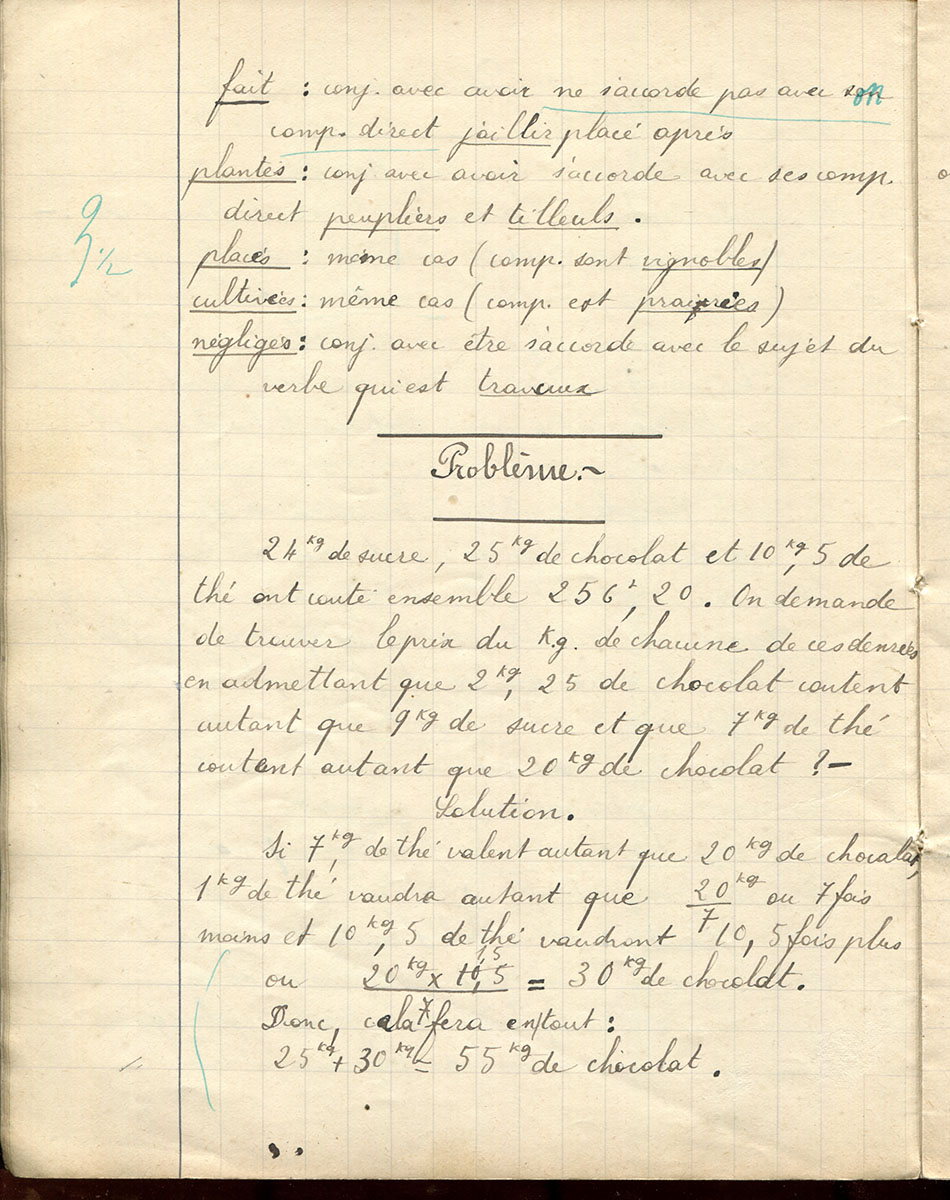 fait : conj. avec avoir ne s'accorde pas avec son
comp. direct jaillir placé après
plantés : conj avec avoir s'accorde avec ses comp.
direct peupliers et tilleuls.
placés : même cas (comp. sont vignobles)
cultivées : même cas (comp. est prairies)
négligés : conj. avec être s'accorde avec le sujet du
verbe qui est travaux
1/2
Problème.-
24 kg de sucre, 25 kg de chocolat et 10 kg,5 de
thé ont couté ensemble 256 f, 20. On demande
de trouver le prix du K.g. de chacune de ces denrées
en admettant que 2 kg, 25 de chocolat coutent
autant que 9 Kg de sucre et que 7 kg de thé
coutent autant que 20 kg de chocolat ?-
Solution.
Si 7 kg, de thé valent autant que 20 kg de chocolat,
1 kg de thé vaudra autant que 20 kg/7 ou 7 fois
moins et 10 kg, 5 de thé vaudront 10,5 fois plus
ou 20 kg x 10,5 / 7 = 30 kg de chocolat.
1,5
Donc, cela fera en tout :
25 kg + 30 kg = 55 kg de chocolat.